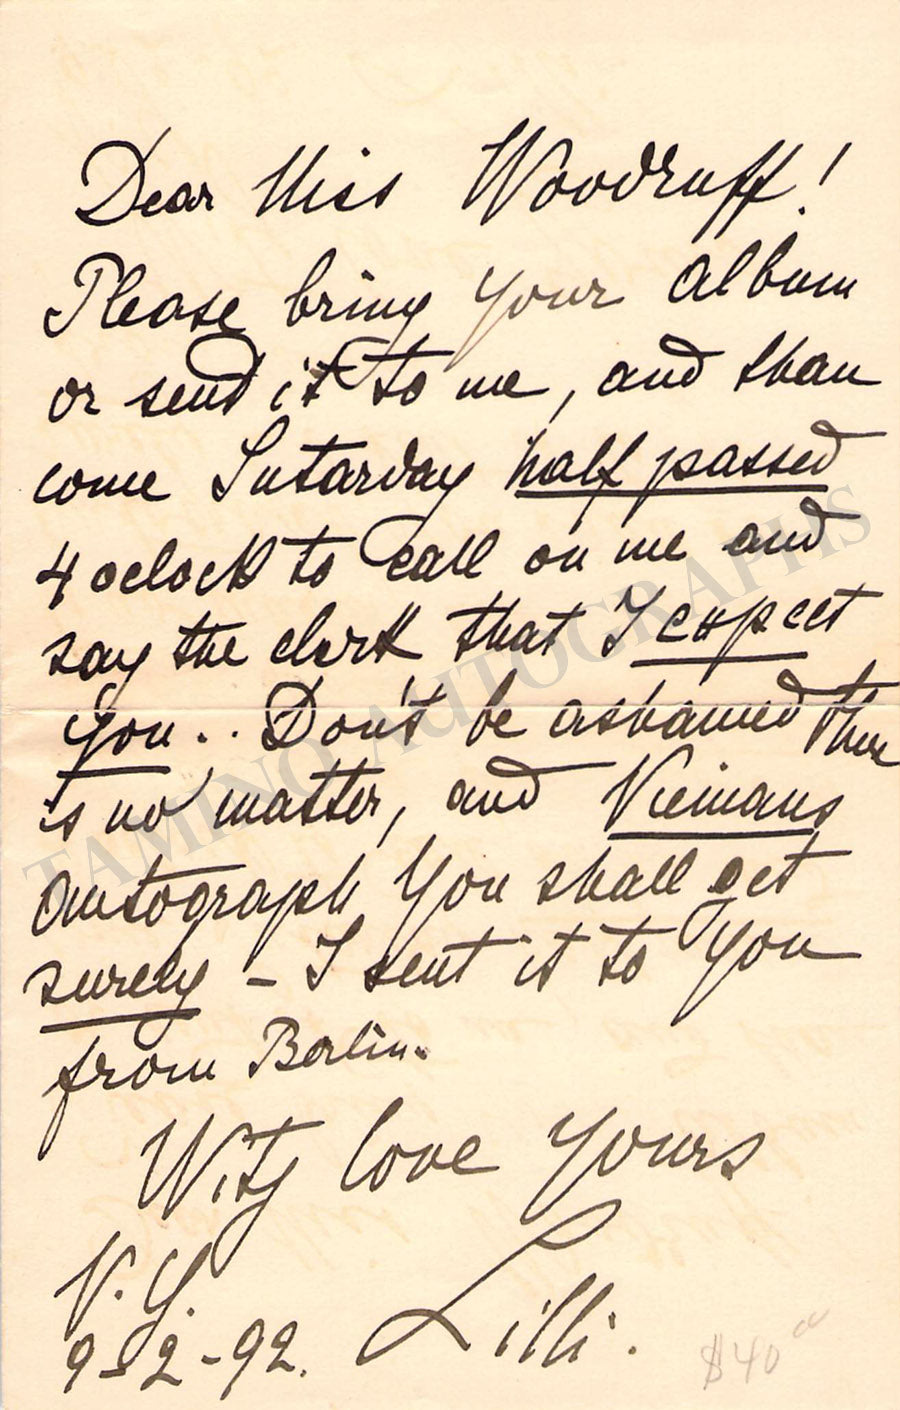 Dear Miss Woodruff!
Please bring your album
or send it to me, and than
come Sutarday half passed
4 oclock to call on me and
say the clerk that I expect
you.. Don't be ashamed there
is no matter, and Niemans
autograph You shall get
surely – I sent it to you
from Berlin.
With love Yours
N. Y.
9-2-92. Lilli.
$40 00
TAMINO AUTOGRAPHS